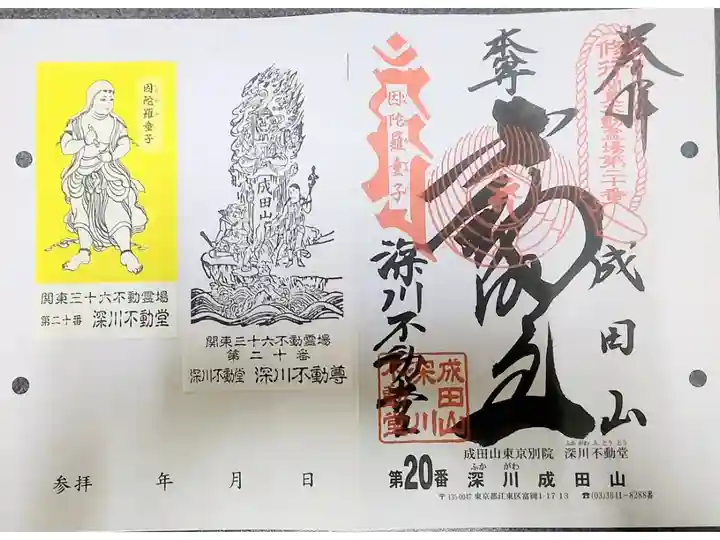 因陀羅童子
関東三十六不動霊場
第二十番 深川不動堂
成田山
関東三十六不動霊場
第二十番
深川不動堂 深川不動尊
参拝 年 月 日
奉拝
本尊
成田山
因陀羅童子
深川不動堂
成田山
深川
不動堂
ふかがわふどうどう
成田山東京別院 深川不動堂
ふか がわ
第20番 深川成田山
〒135-0047 東京都江東区富岡1-17-13 ☎(03)3641-8288番